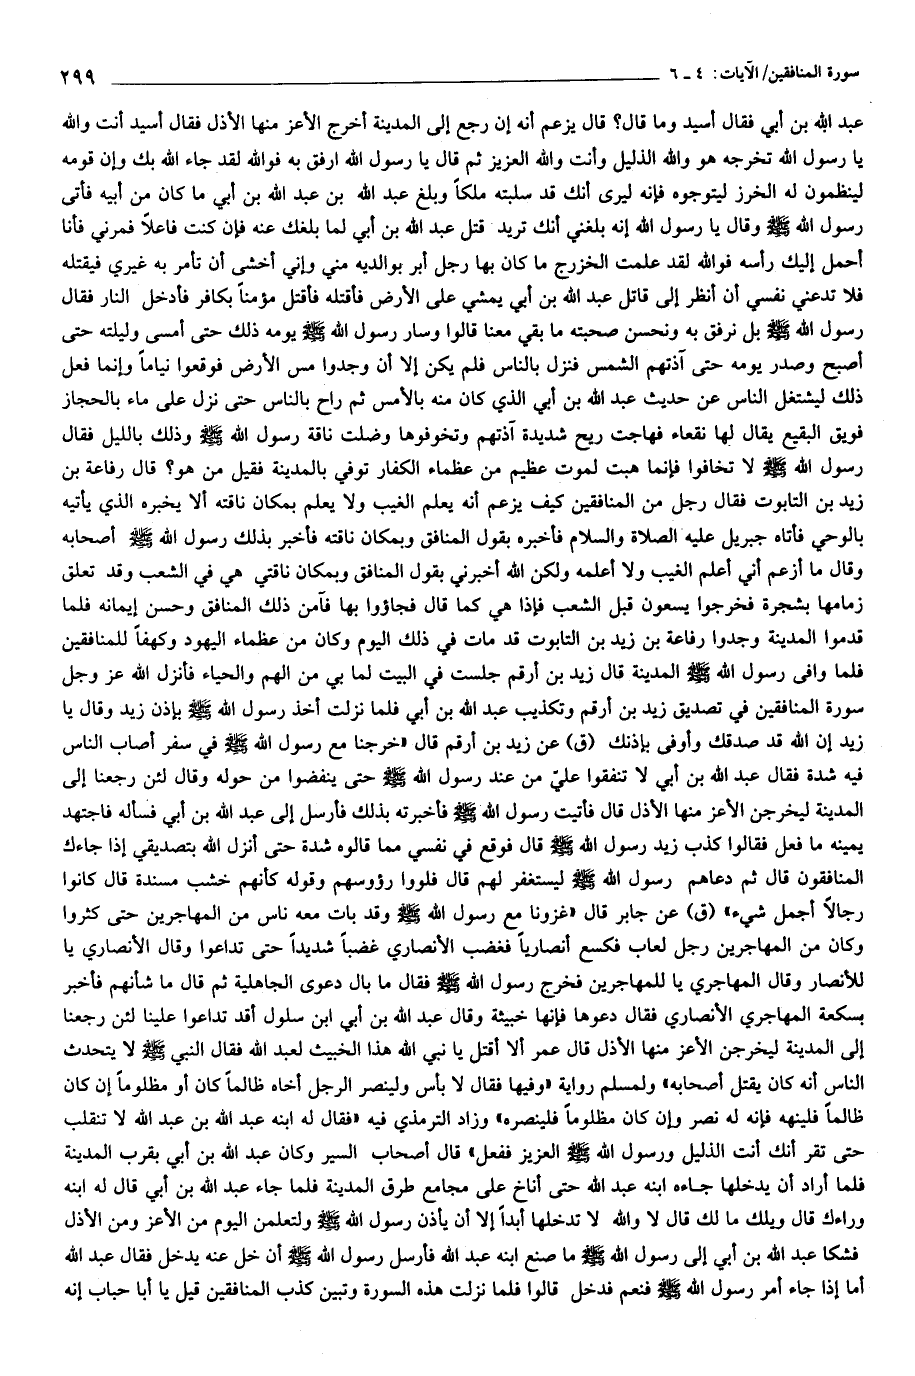 سورة المنافقين/ الآيات: ٤ ـ ٦ ٢٩٩
عبد الله بن أبي فقال أسيد وما قال؟ قال يزعم أنه إن رجع إلى المدينة أخرج الأعز منها الأذل فقال أسيد أنت والله
يا رسول الله تخرجه هو والله الذليل وأنت والله العزيز ثم قال يا رسول الله ارفق به فوالله لقد جاء الله بك وإن قومه
لينظمون له الخرز ليتوجوه فإنه ليرى أنك قد سلبته ملكاً وبلغ عبد الله بن عبد الله بن أبي ما كان من أبيه فأتى
رسول الله ﷺ وقال يا رسول الله إنه بلغني أنك تريد قتل عبد الله بن أبي لما بلغك عنه فإن كنت فاعلاً فمرني فأنا
أحمل إليك رأسه فوالله لقد علمت الخزرج ما كان بها رجل أبر بوالديه مني وإني أخشى أن تأمر به غيري فيقتله
فلا تدعني نفسي أن أنظر إلى قاتل عبد الله بن أبي يمشي على الأرض فأقتله فأقتل مؤمناً بكافر فأدخل النار فقال
رسول الله ﷺ بل نرفق به ونحسن صحبته ما بقي معنا قالوا وسار رسول الله ﷺ يومه ذلك حتى أمسى وليلته حتى
أصبح وصدر يومه حتى آذتهم الشمس فنزل بالناس فلم يكن إلا أن وجدوا مس الأرض فوقعوا نياماً وإنما فعل
ذلك ليشتغل الناس عن حديث عبد الله بن أبي الذي كان منه بالأمس ثم راح بالناس حتى نزل على ماء بالحجاز
فويق البقيع يقال لها نقعاء فهاجت ريح شديدة آذتهم وتخوفوها وضلت ناقة رسول الله ﷺ وذلك بالليل فقال
رسول الله ﷺ لا تخافوا فإنما هبت لموت عظيم من عظماء الكفار توفي بالمدينة فقيل من هو؟ قال رفاعة بن
زيد بن التابوت فقال رجل من المنافقين كيف يزعم أنه يعلم الغيب ولا يعلم بمكان ناقته ألا يخبره الذي يأتيه
بالوحي فأتاه جبريل عليه الصلاة والسلام فأخبره بقول المنافق وبمكان ناقته فأخبر بذلك رسول الله ﷺ أصحابه
وقال ما أزعم أني أعلم الغيب ولا أعلمه ولكن الله أخبرني بقول المنافق وبمكان ناقتي هي في الشعب وقد تعلق
زمامها بشجرة فخرجوا يسعون قبل الشعب فإذا هي كما قال فجاؤوا بها فآمن ذلك المنافق وحسن إيمانه فلما
قدموا المدينة وجدوا رفاعة بن زيد بن التابوت قد مات في ذلك اليوم وكان من عظماء اليهود وكهفاً للمنافقين
فلما وافى رسول الله ﷺ المدينة قال زيد بن أرقم جلست في البيت لما بي من الهم والحياء فأنزل الله عز وجل
سورة المنافقين في تصديق زيد بن أرقم وتكذيب عبد الله بن أبي فلما نزلت أخذ رسول الله ﷺ بإذن زيد وقال يا
زيد إن الله قد صدقك وأوفى بإذنك (ق) عن زيد بن أرقم قال «خرجنا مع رسول الله ﷺ في سفر أصاب الناس
فيه شدة فقال عبد الله بن أبي لا تنفقوا عليّ من عند رسول الله ﷺ حتى ينفضوا من حوله وقال لئن رجعنا إلى
المدينة ليخرجن الأعز منها الأذل قال فأتيت رسول الله ﷺ فأخبرته بذلك فأرسل إلى عبد الله بن أبي فسأله فاجتهد
يمينه ما فعل فقالوا كذب زيد رسول الله ﷺ قال فوقع في نفسي مما قالوه شدة حتى أنزل الله بتصديقي إذا جاءك
المنافقون قال ثم دعاهم رسول الله ﷺ ليستغفر لهم قال فلووا رؤوسهم وقوله كأنهم خشب مسندة قال كانوا
رجالاً أجمل شيء» (ق) عن جابر قال «غزونا مع رسول الله ﷺ وقد بات معه ناس من المهاجرين حتى كثروا
وكان من المهاجرين رجل لعاب فكسع أنصارياً فغضب الأنصاري غضباً شديداً حتى تداعوا وقال الأنصاري يا
للأنصار وقال المهاجري يا للمهاجرين فخرج رسول الله ﷺ فقال ما بال دعوى الجاهلية ثم قال ما شأنهم فأخبر
بسكعة المهاجري الأنصاري فقال دعوها فإنها خبيثة وقال عبد الله بن أبي ابن سلول أقد تداعوا علينا لئن رجعنا
إلى المدينة ليخرجن الأعز منها الأذل قال عمر ألا أقتل يا نبي الله هذا الخبيث لعبد الله فقال النبي ﷺ لا يتحدث
الناس أنه كان يقتل أصحابه» ولمسلم رواية «وفيها فقال لا بأس ولينصر الرجل أخاه ظالماً كان أو مظلوماً إن كان
ظالماً فلينهه فإنه له نصر وإن كان مظلوماً فلينصره» وزاد الترمذي فيه «فقال له ابنه عبد الله بن عبد الله لا تنقلب
حتى تقر أنك أنت الذليل ورسول الله ﷺ العزيز ففعل» قال أصحاب السير وكان عبد الله بن أبي بقرب المدينة
فلما أراد أن يدخلها جاءه ابنه عبد الله حتى أناخ على مجامع طرق المدينة فلما جاء عبد الله بن أبي قال له ابنه
وراءك قال ويلك ما لك قال لا والله لا تدخلها أبداً إلا أن يأذن رسول الله ﷺ ولتعلمن اليوم من الأعز ومن الأذل
فشكا عبد الله بن أبي إلى رسول الله ﷺ ما صنع ابنه عبد الله فأرسل رسول الله ﷺ أن خل عنه يدخل فقال عبد الله
أما إذا جاء أمر رسول الله ﷺ فنعم فدخل قالوا فلما نزلت هذه السورة وتبين كذب المنافقين قيل يا أبا حباب إنه